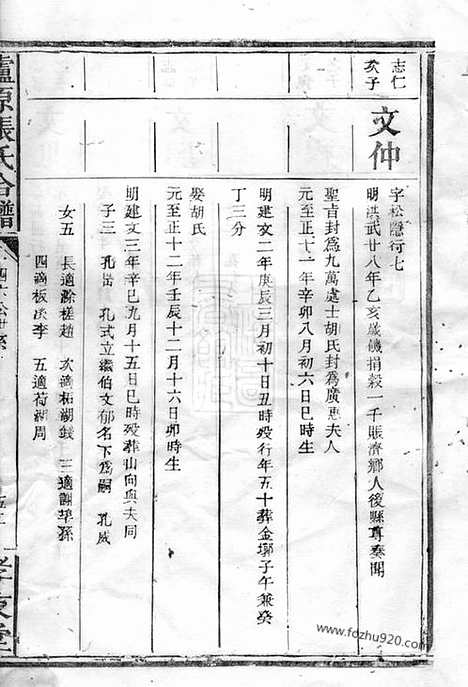 志仁
次子
文仲
字松隱行七
明洪武廿八年乙亥歲磯捐穀一千賑濟鄉人後縣尊奏聞
聖旨封爲九萬處士胡氏封爲廣惠夫人
元至正十一年辛卯八月初六日巳時生
明建文二年庚辰三月初十日丑時歿行年五十葬金㙇子午兼癸
丁三分
娶胡氏
元至正十二年壬辰十二月十六日卯時生
明建文三年辛巳九月十五日巳時歿葬山向與夫同
子三 孔岀 孔式立繼伯文郁名下爲嗣 孔威
女五 長適滁槎趙 次適柘湖錢 三適謝埠孫
四適板溪李 五適荷湖周
張氏合譜
孝友堂
www.fozhu920.com